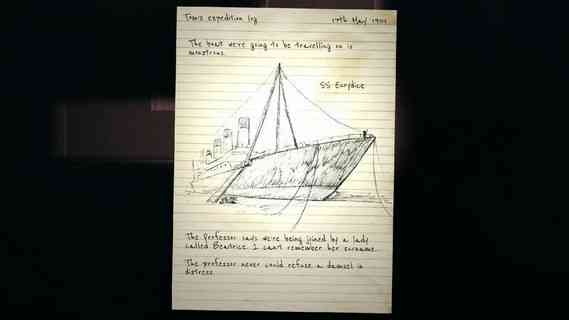 Tom's expedition log
17th May 1901
The boat we're going to be travelling on is
monstrous.
SS. Eurydice
The Professor says we're being joined by a lady
called Beatrice. I can't remember her surname.
The professor never could refuse a damsel in
distress